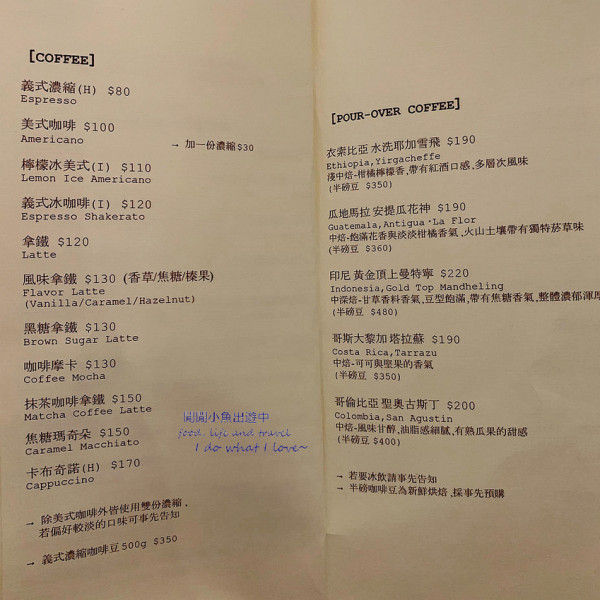 [COFFEE]
義式濃縮(H) $80
Espresso
美式咖啡 $100
Americano
→ 加一份濃縮$30
檸檬冰美式(I) $110
Lemon Ice Americano
義式冰咖啡(I) $120
Espresso Shakerato
拿鐵 $120
Latte
風味拿鐵 $130 (香草/焦糖/榛果)
Flavor Latte
(Vanilla/Caramel/Hazelnut)
黑糖拿鐵 $130
Brown Sugar Latte
咖啡摩卡 $130
Coffee Mocha
抹茶咖啡拿鐵 $150
Matcha Coffee Latte
焦糖瑪奇朵 $150
Caramel Macchiato
卡布奇諾(H) $170
Cappuccino
→ 除美式咖啡外皆使用雙份濃縮,
若偏好較淡的口味可事先告知
→ 義式濃縮咖啡豆500g $350
小魚出遊中
food. life and travel
I do what I love~
[POUR-OVER COFFEE]
衣索比亞 水洗耶加雪飛 $190
Ethiopia,Yirgacheffe
淺中焙-柑橘檸檬香,帶有紅酒口感,多層次風味
(半磅豆 $350)
瓜地馬拉 安提瓜花神 $190
Guatemala,Antigua·La Flor
中焙-飽滿花香與淡淡柑橘香氣,火山土壤帶有獨特菸草味
(半磅豆 $360)
印尼 黃金頂上曼特寧 $220
Indonesia,Gold Top Mandheling
中深焙-甘草香料香氣,豆型飽滿,帶有焦糖香氣,整體濃郁渾厚
(半磅豆 $480)
哥斯大黎加 塔拉蘇 $190
Costa Rica,Tarrazu
中焙-可可與堅果的香氣
(半磅豆 $350)
哥倫比亞 聖奧古斯丁 $200
Colombia,San Agustin
中焙-風味甘醇,油脂感細膩,有熟瓜果的甜感
(半磅豆 $400)
→ 若要冰飲請事先告知
→ 半磅咖啡豆為新鮮烘焙,採事先預購